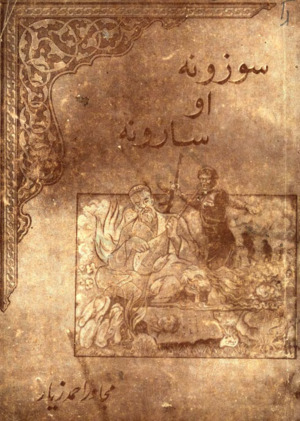 سوزونه
او
سارونه
مجاور احمد زیار